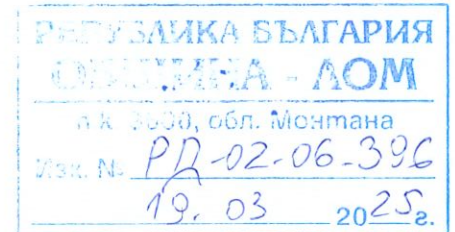 РЕПУБЛИКА БЪЛГАРИЯ
ОБЩИНА - ЛОМ
п.к. 3600, обл. Монтана
Изх. № РД-02-06-396
19. 03 2025г.